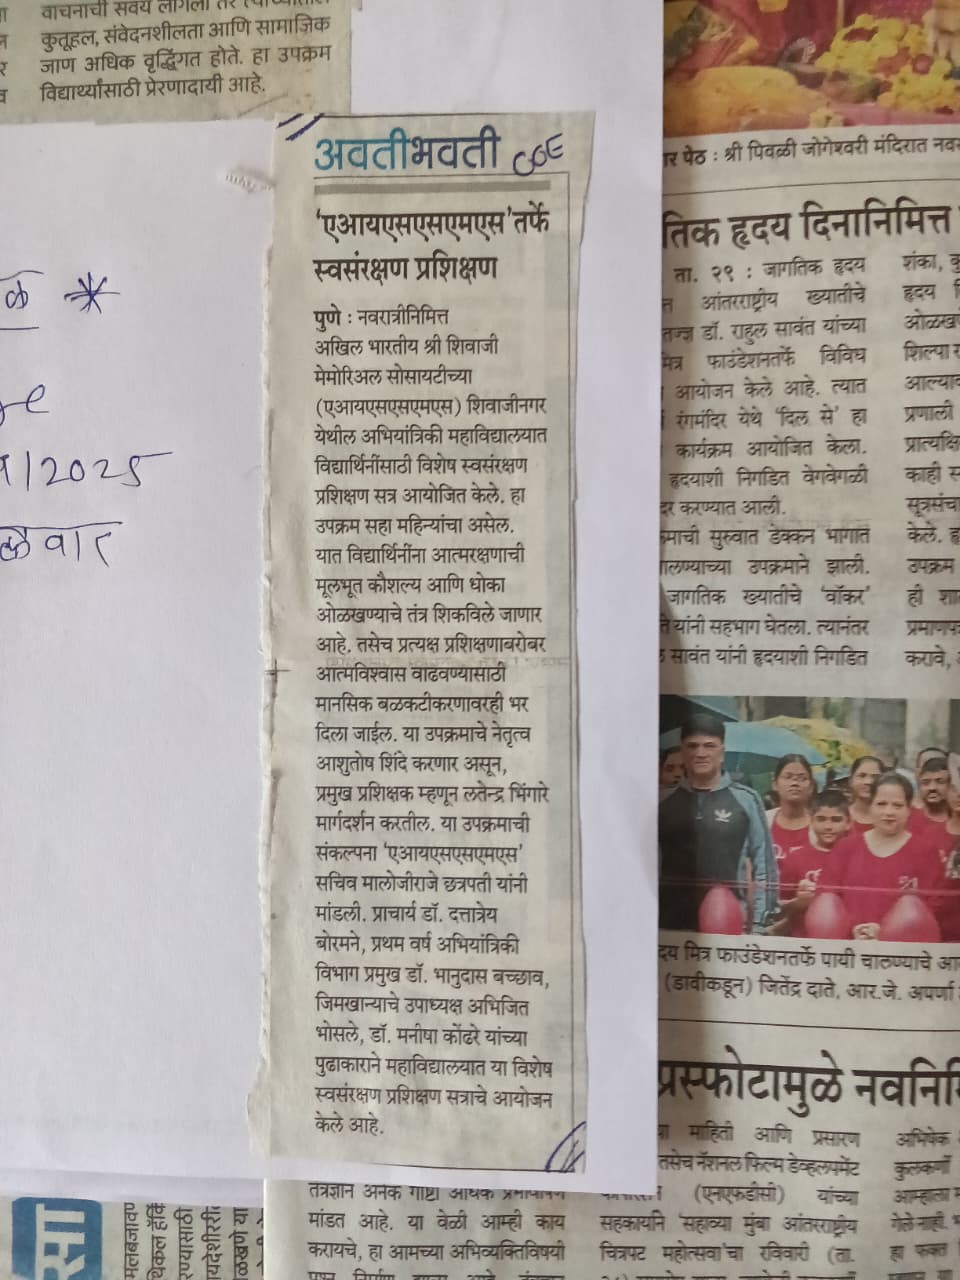 वाचनाची सवय लागली तर
कुतूहल, संवेदनशीलता आणि सामाजिक
जाण अधिक वृद्धिंगत होते. हा उपक्रम
विद्यार्थ्यांसाठी प्रेरणादायी आहे.
/2025
अवतीभवती COE
'एआयएसएसएमएस'तर्फे
स्वसंरक्षण प्रशिक्षण
पुणे : नवरात्रीनिमित्त
अखिल भारतीय श्री शिवाजी
मेमोरिअल सोसायटीच्या
(एआयएसएसएमएस) शिवाजीनगर
येथील अभियांत्रिकी महाविद्यालयात
विद्यार्थिनींसाठी विशेष स्वसंरक्षण
प्रशिक्षण सत्र आयोजित केले. हा
उपक्रम सहा महिन्यांचा असेल.
यात विद्यार्थिनींना आत्मरक्षणाची
मूलभूत कौशल्य आणि धोका
ओळखण्याचे तंत्र शिकविले जाणार
आहे. तसेच प्रत्यक्ष प्रशिक्षणाबरोबर
आत्मविश्वास वाढवण्यासाठी
मानसिक बळकटीकरणावरही भर
दिला जाईल. या उपक्रमाचे नेतृत्व
आशुतोष शिंदे करणार असून,
प्रमुख प्रशिक्षक म्हणून लतेन्द्र भिंगारे
मार्गदर्शन करतील. या उपक्रमाची
संकल्पना 'एआयएसएसएमएस'
सचिव मालोजीराजे छत्रपती यांनी
मांडली. प्राचार्य डॉ. दत्तात्रेय
बोरमने, प्रथम वर्ष अभियांत्रिकी
विभाग प्रमुख डॉ. भानुदास बच्छाव,
जिमखान्याचे उपाध्यक्ष अभिजित
भोसले, डॉ. मनीषा कोंढरे यांच्या
पुढाकाराने महाविद्यालयात या विशेष
स्वसंरक्षण प्रशिक्षण सत्राचे आयोजन
केले आहे.
पेठ : श्री पिवळी जोगेश्वरी मंदिरात
हृदय दिनानिमित्त
ता. २९ : जागतिक हृदय
आंतरराष्ट्रीय ख्यातीचे
डॉ. राहुल सावंत यांच्या
फाउंडेशनतर्फे विविध
आयोजन केले आहे. त्यात
रंगमंदिर येथे 'दिल से' हा
कार्यक्रम आयोजित केला.
हृदयाशी निगडित वेगवेगळी
करण्यात आली.
सुरुवात डेक्कन भागात
उपक्रमाने झाली.
जागतिक ख्यातीचे 'वॉकर'
यांनी सहभाग घेतला. त्यानंतर
सावंत यांनी हृदयाशी निगडित
शंका,
हृदय
प्रणाली
काही
केले.
उपक्रम
ही
करावे,
मित्र फाउंडेशनतर्फे पायी चालण्याचे
(डावीकडून) जितेंद्र दाते, आर.जे. अपर्णा
माहिती आणि प्रसारण
तसेच नॅशनल फिल्म डेव्हलपमेंट
(एनएफडीसी) यांच्या
सहकार्याने 'सहाव्या मुंबा आंतरराष्ट्रीय
चित्रपट महोत्सवा'चा रविवारी (ता.
अभिषेक
कुलकर्णी
आम्हाला
गेले नाही.
हा फक्त
मांडत आहे. या वेळी आम्ही काय
करायचे, हा आमच्या अभिव्यक्तिविषयी